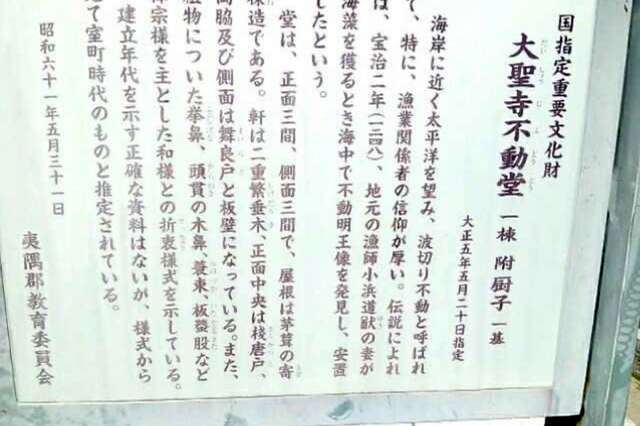 国指定重要文化財
大聖寺不動堂 一棟 附厨子 一基
だいしょうじふどうどう
大正五年五月二十日指定
海岸に近く太平洋を望み、波切り不動と呼ばれ
て、特に、漁業関係者の信仰が厚い。伝説によれ
ば、宝治二年(一二四八)、地元の漁師小浜道獣の妻が
海藻を獲るとき海中で不動明王像を発見し、安置
したという。
堂は、正面三間、側面三間で、屋根は茅葺の寄
棟造である。軒は二重繁垂木、正面中央は桟唐戸、
両脇及び側面は舞良戸と板壁になっている。また、
粧物についた拳鼻、頭貫の木鼻、蓑束、板蟇股など
禅宗様を主とした和様との折衷様式を示している。
建立年代を示す正確な資料はないが、様式から
室町時代のものと推定されている。
昭和六十一年五月三十一日
夷隅郡教育委員会